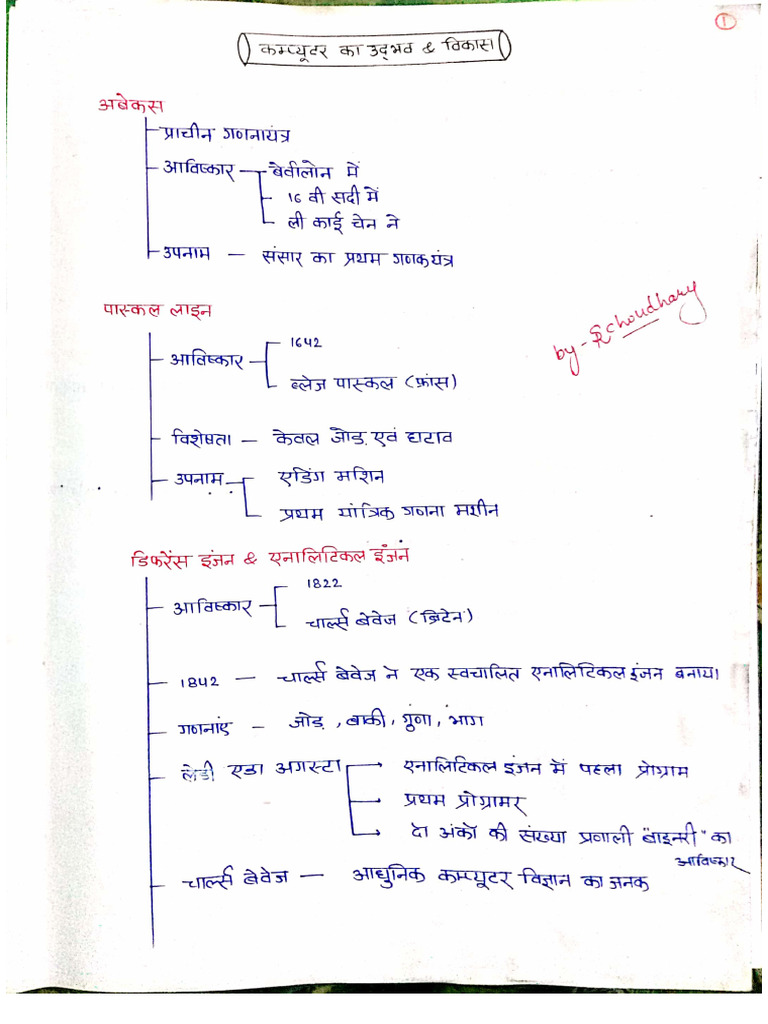 ①
कम्प्यूटर का उद्‌भव & विकास
अबेकस
प्राचीन गणनायंत्र
आविष्कार — बेवीलोन में
16 वी सदी में
ली काई चेन ने
उपनाम — संसार का प्रथम गणकयंत्र
पास्कल लाइन
by - SR Choudhary
आविष्कार — 1642
ब्लेज पास्कल (फ्रांस)
विशेषता — केवल जोड़ एवं घटाव
उपनाम — एडिंग मशिन
प्रथम यांत्रिक गणना मशीन
डिफरेंस इंजन & एनालिटिकल इंजन
आविष्कार — 1822
चार्ल्स बेवेज (ब्रिटेन)
1842 — चार्ल्स बेवेज ने एक स्वचालित एनालिटिकल इंजन बनाया।
गणनाएं — जोड़, बाकी, गुणा, भाग
लेडी एडा अगस्टा → एनालिटिकल इंजन में पहला प्रोग्राम
→ प्रथम प्रोग्रामर
→ दो अंको की संख्या प्रणाली "बाइनरी" का
आविष्कार
चार्ल्स बेवेज — आधुनिक कम्प्यूटर विज्ञान का जनक